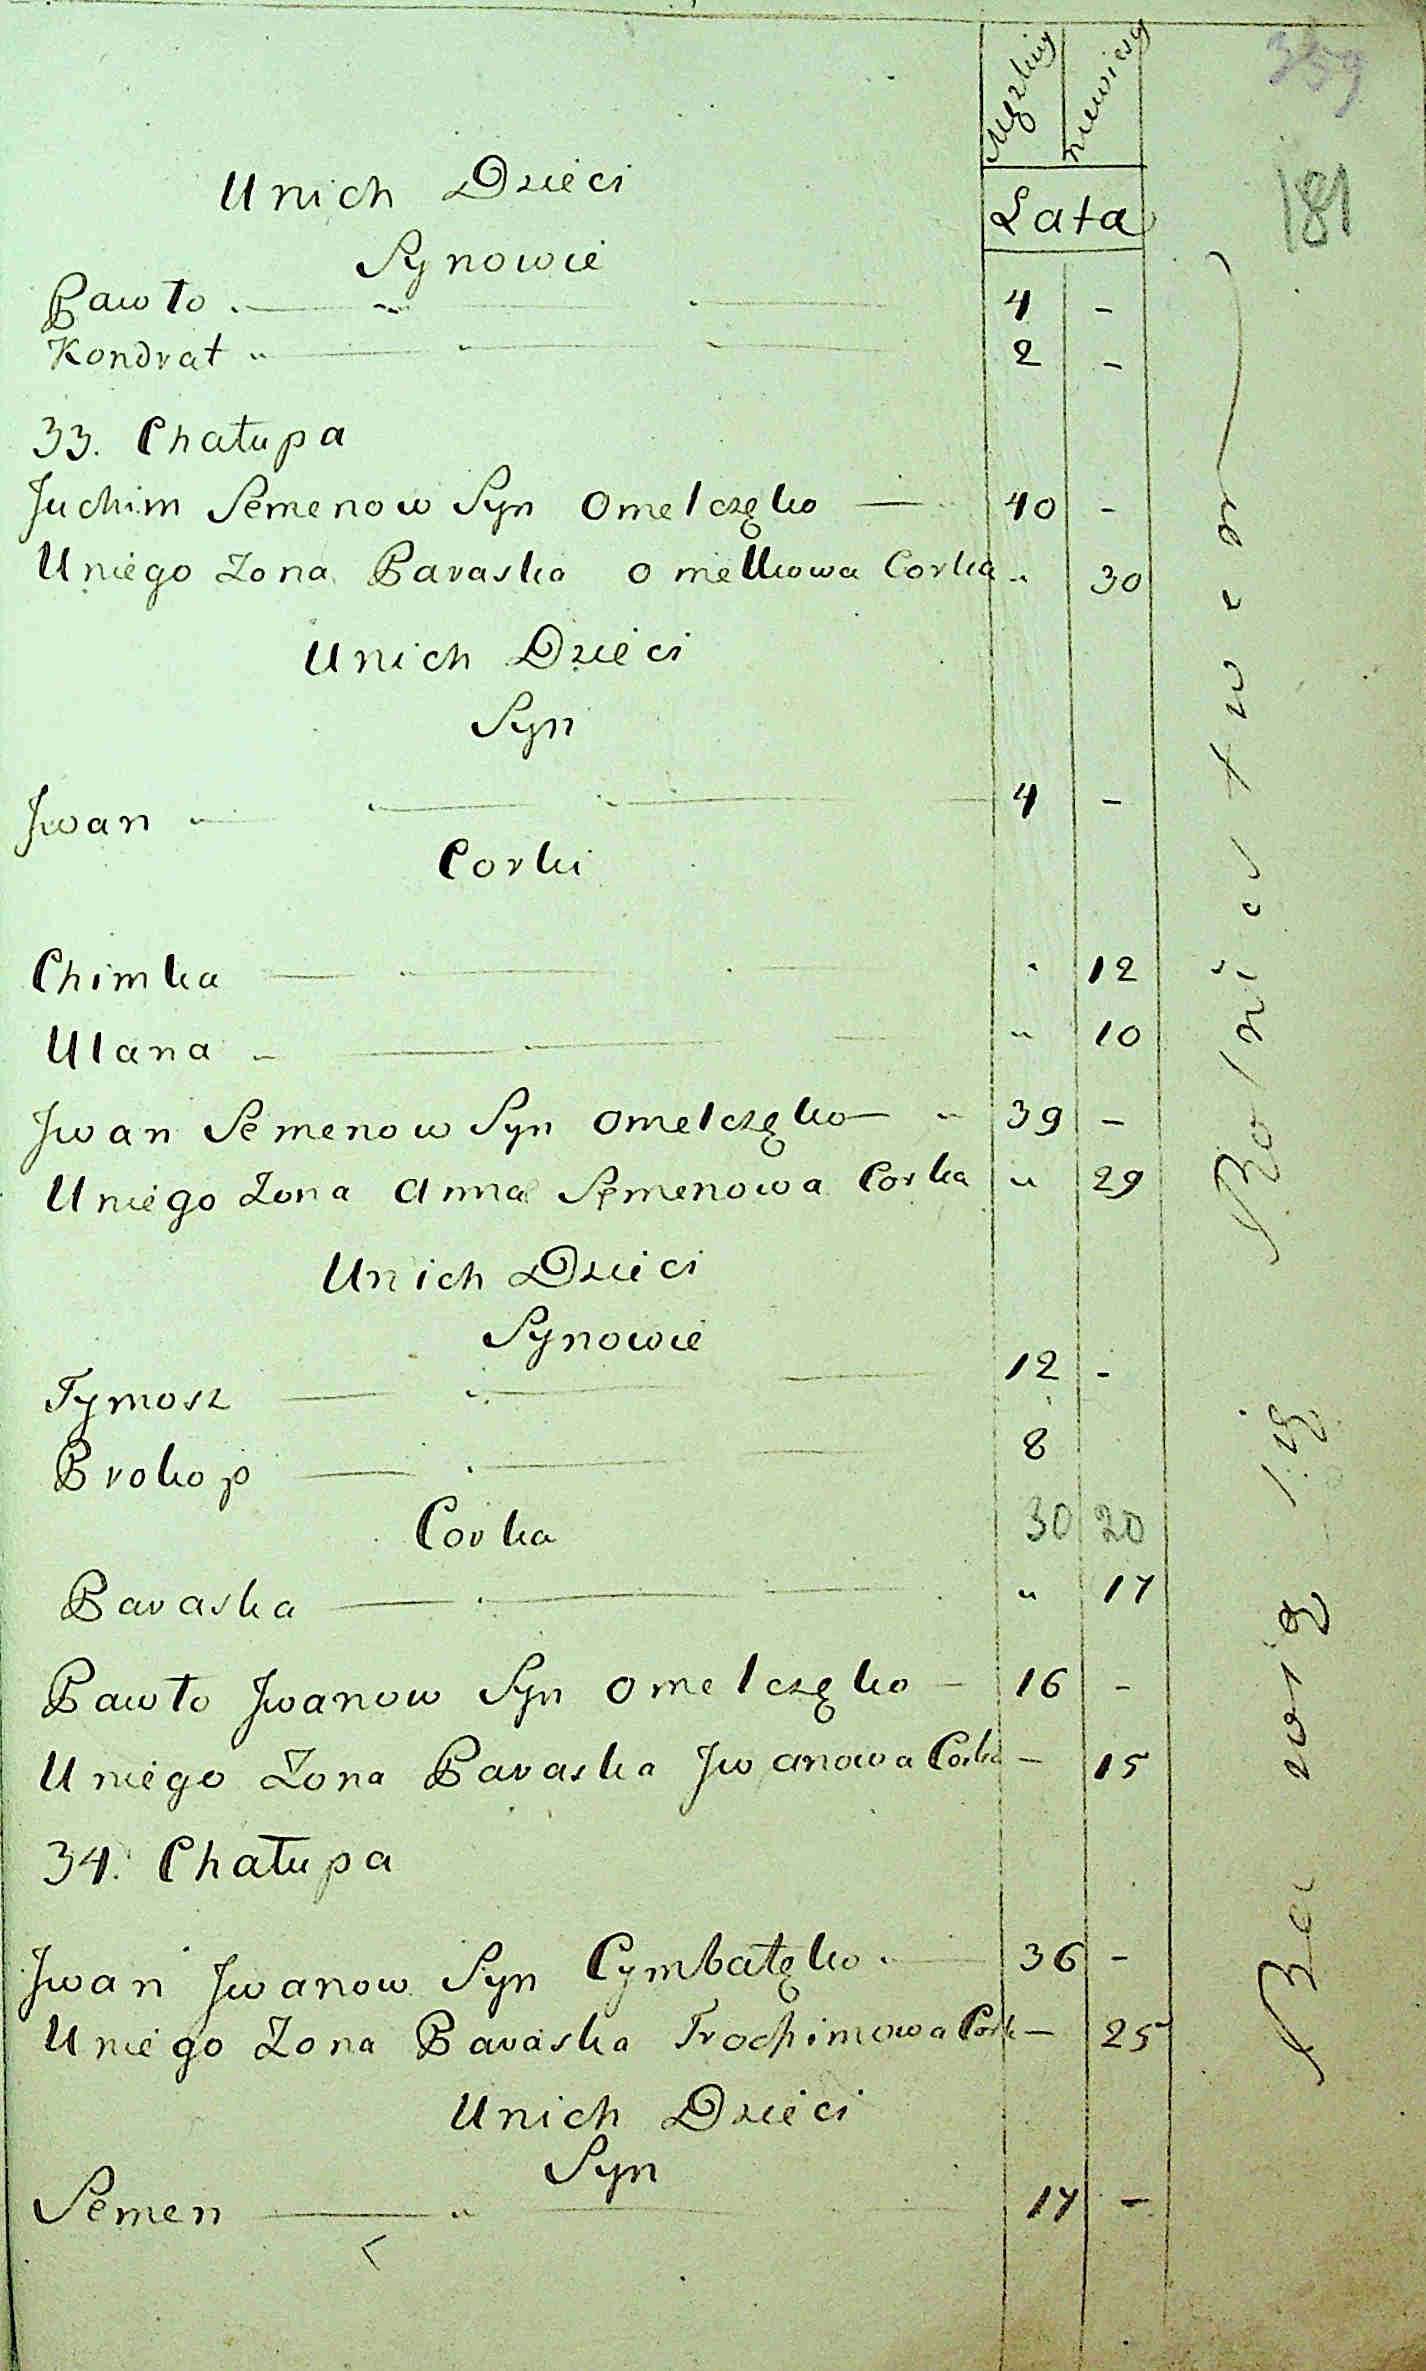 359
Męzkiey niewiescy
181
Unich Dzieci
Lata
Synowie
Pawło 4 -
Kondrat 2 -
33. Chałupa
Juchim Semenow Syn Omelczęko 40 -
Uniego Zona Paraska Omelkowa Corka " 30
Unich Dzieci
Syn
Jwan 4 -
Corki
Chimka " 12
Ulana " 10
Jwan Semenow Syn Omelczęko 39 -
Uniego Zona Anna Semenowa Corka " 29
Unich Dzieci
Synowie
Tymosz 12 -
Prokop 8
Corka 30 20
Paraska " 17
Pawło Jwanow Syn Omelczęko 16 -
Uniego Zona Paraska Jwanowa Corka - 15
34. Chałupa
Jwan Jwanow Syn Cymbałęko 36 -
Uniego Zona Paraska Trochimowa Cork - 25
Unich Dzieci
Syn
Semen 17 -